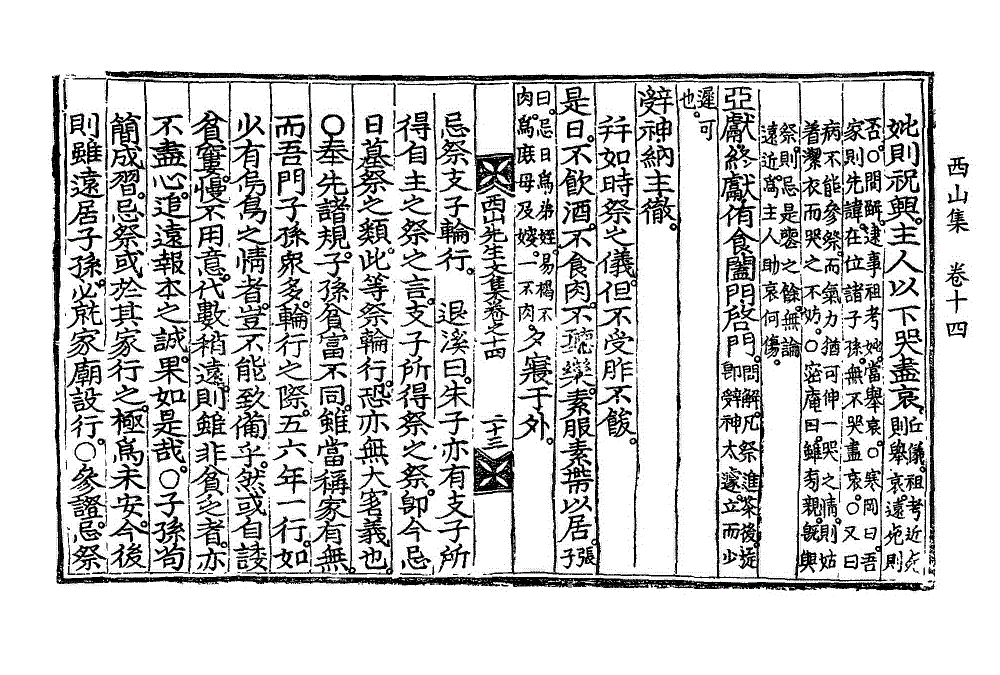 西山集 卷十四
妣則祝興。主人以下哭盡哀。丘儀。祖考近死則舉哀。遠死則
否。○問解。逮事祖考妣。當舉哀。○寒岡曰。吾家則先諱在位諸子孫。無不哭盡哀。○又曰
病不能參祭。而氣力猶可伸一哭之情。則姑著潔衣而哭之不妨。○密庵曰。雖考親。旣與
祭則忌是喪之餘。無論遠近。爲主人助哀何傷。
亞獻終獻侑食闔門啓門。問解。凡祭進茶後旋卽辭神太遽。立而少
遲可也。
辭神納主徹。
並如時祭之儀。但不受胙不餕。
是日。不飮酒。不食肉。不聽樂。素服素帶以居。張子
曰。忌日爲弟姪。易褐不肉。爲庶母及嫂。一不肉。夕寢于外。
西山先生文集卷之十四 二十三
忌祭支子輪行。 退溪曰。朱子亦有支子所
得自主之祭之言。支子所得祭之祭。卽今忌
日墓祭之類。此等祭輪行。恐亦無大害義也。
○奉先諸規。子孫貧富不同。雖當稱家有無。
而吾門子孫衆多。輪行之際。五六年一行。如
少有傷焉之情者。豈不能致備乎。然或自諉
貧窶。慢不用意。代數稍遠。則雖非貧乏者。亦
不盡心。追遠報本之誠。果如是哉。○子孫苟
簡成習。忌祭或於其家行之。極爲未安。今後
則雖遠居子孫。必就家廟設行。○參證。忌祭